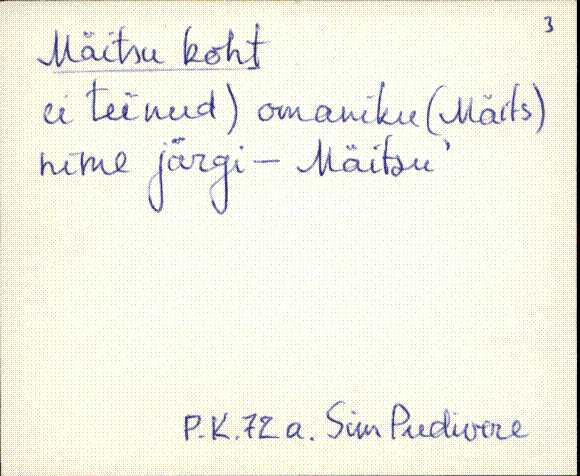 3
Mäitsu koht
ei teinud) omaniku (Mäits)
nime järgi – Mäitsu'
P.K. 72 a. Sim Pudivere